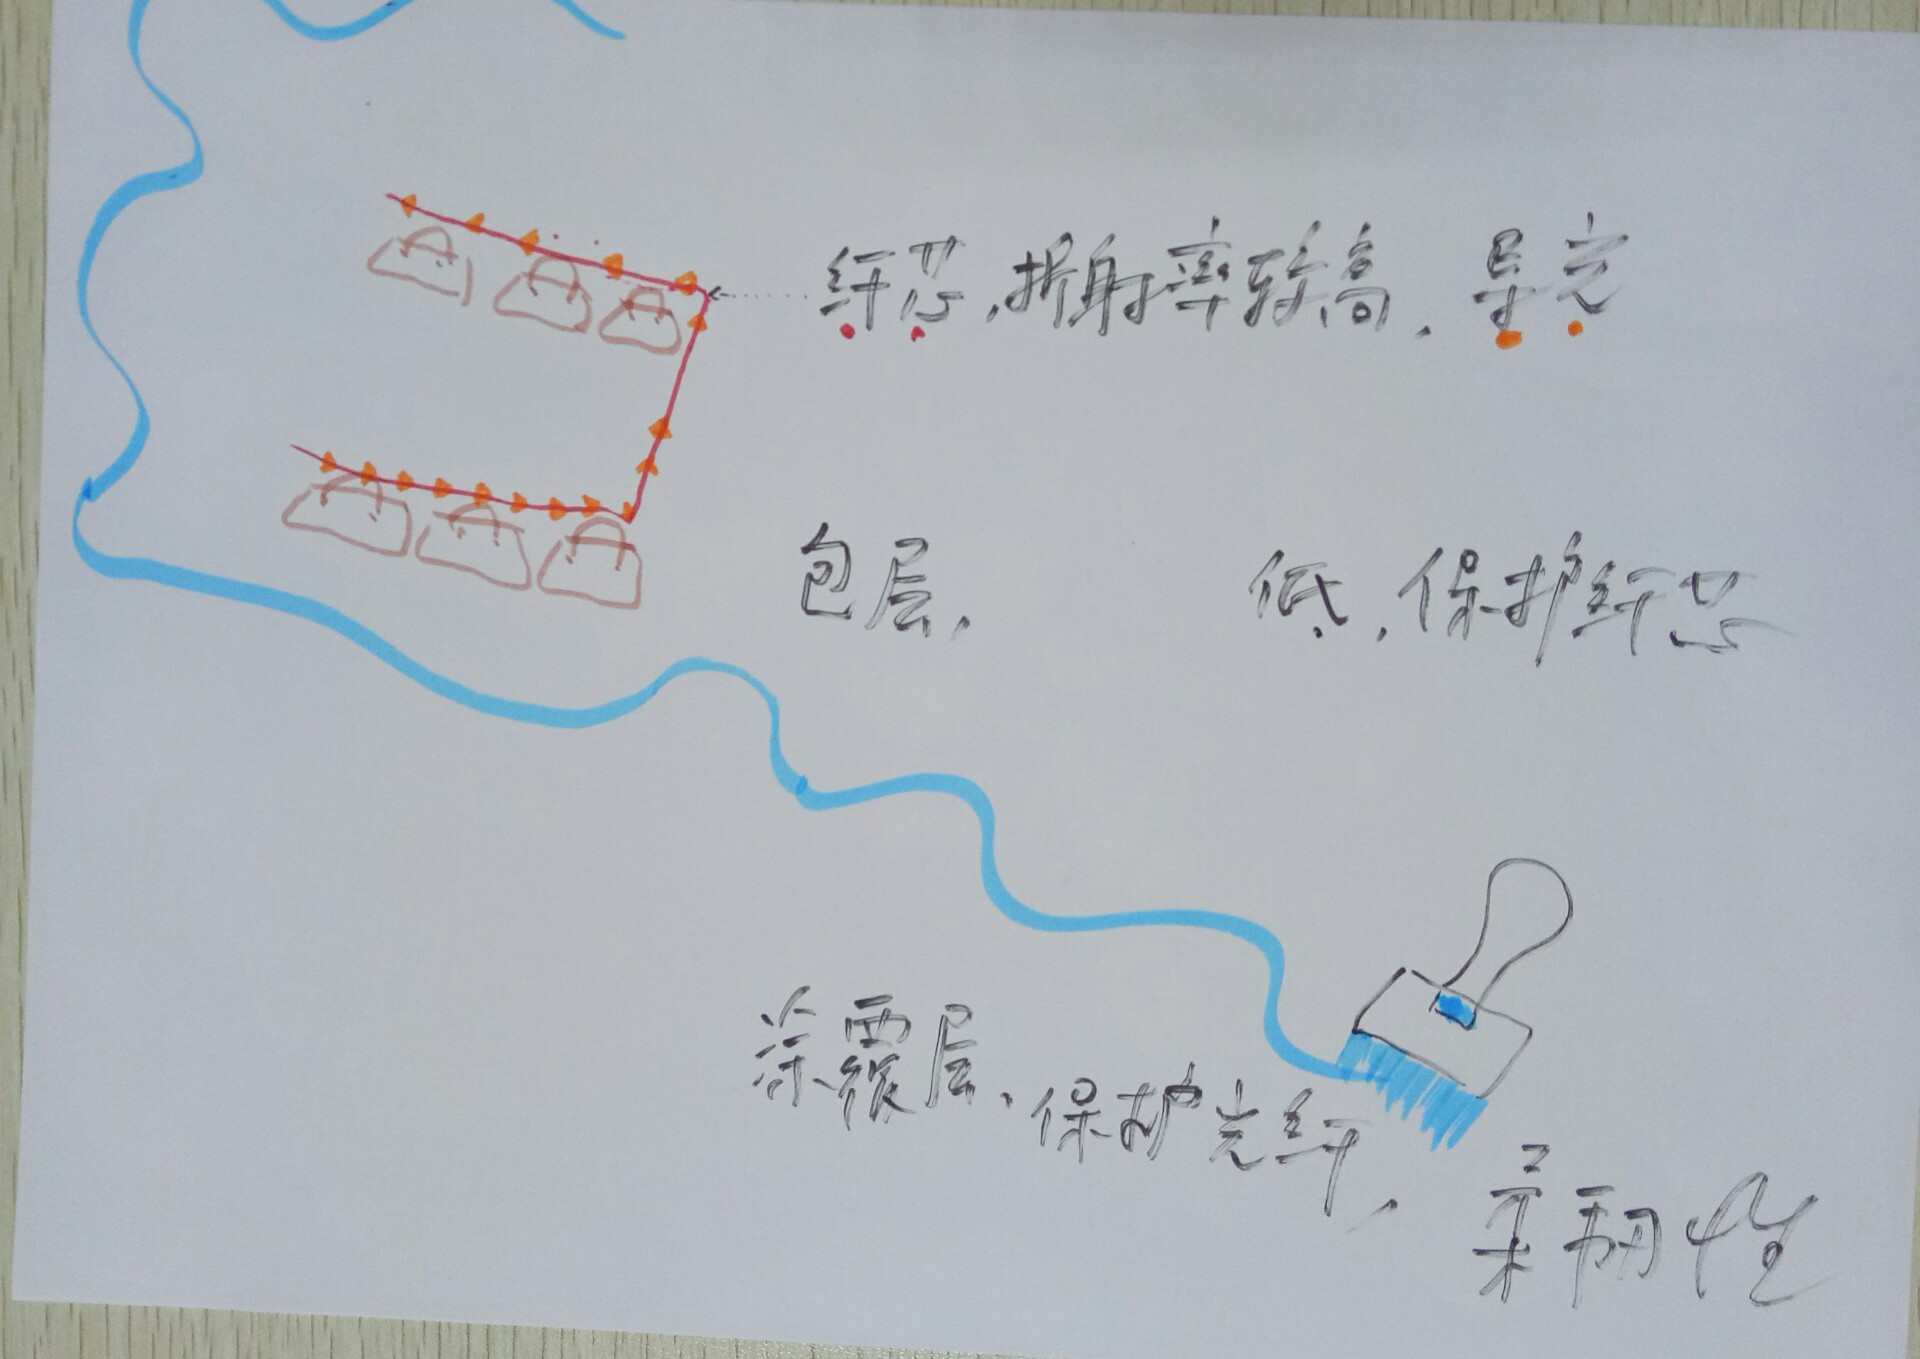 纤芯,折射率较高,导光
包层, 低,保护纤芯
涂覆层、保护光纤,
柔韧性